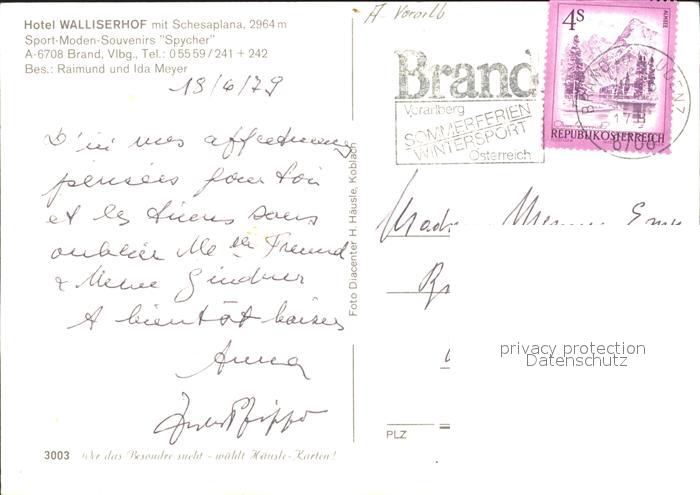 Hotel WALLISERHOF mit Schesaplana, 2964 m
Sport-Moden-Souvenirs "Spycher"
A-6708 Brand, Vlbg., Tel.: 0 55 59 / 241 + 242
Bes.: Raimund und Ida Meyer
18/6/79
pensées pour toi
et les tiens sans
oublier Me Freund
& Meme
A bientôt baisers
Anna
3003 Wer das Besondre sucht - wählt Häusle-Karten!
Foto Diacenter H. Häusle, Koblach
A-Vorarlb
Brand
Vorarlberg
SOMMERFERIEN
WINTERSPORT
Österreich
4S
ALMSEE
REPUBLIK ÖSTERREICH
6708
privacy protection
Datenschutz
PLZ